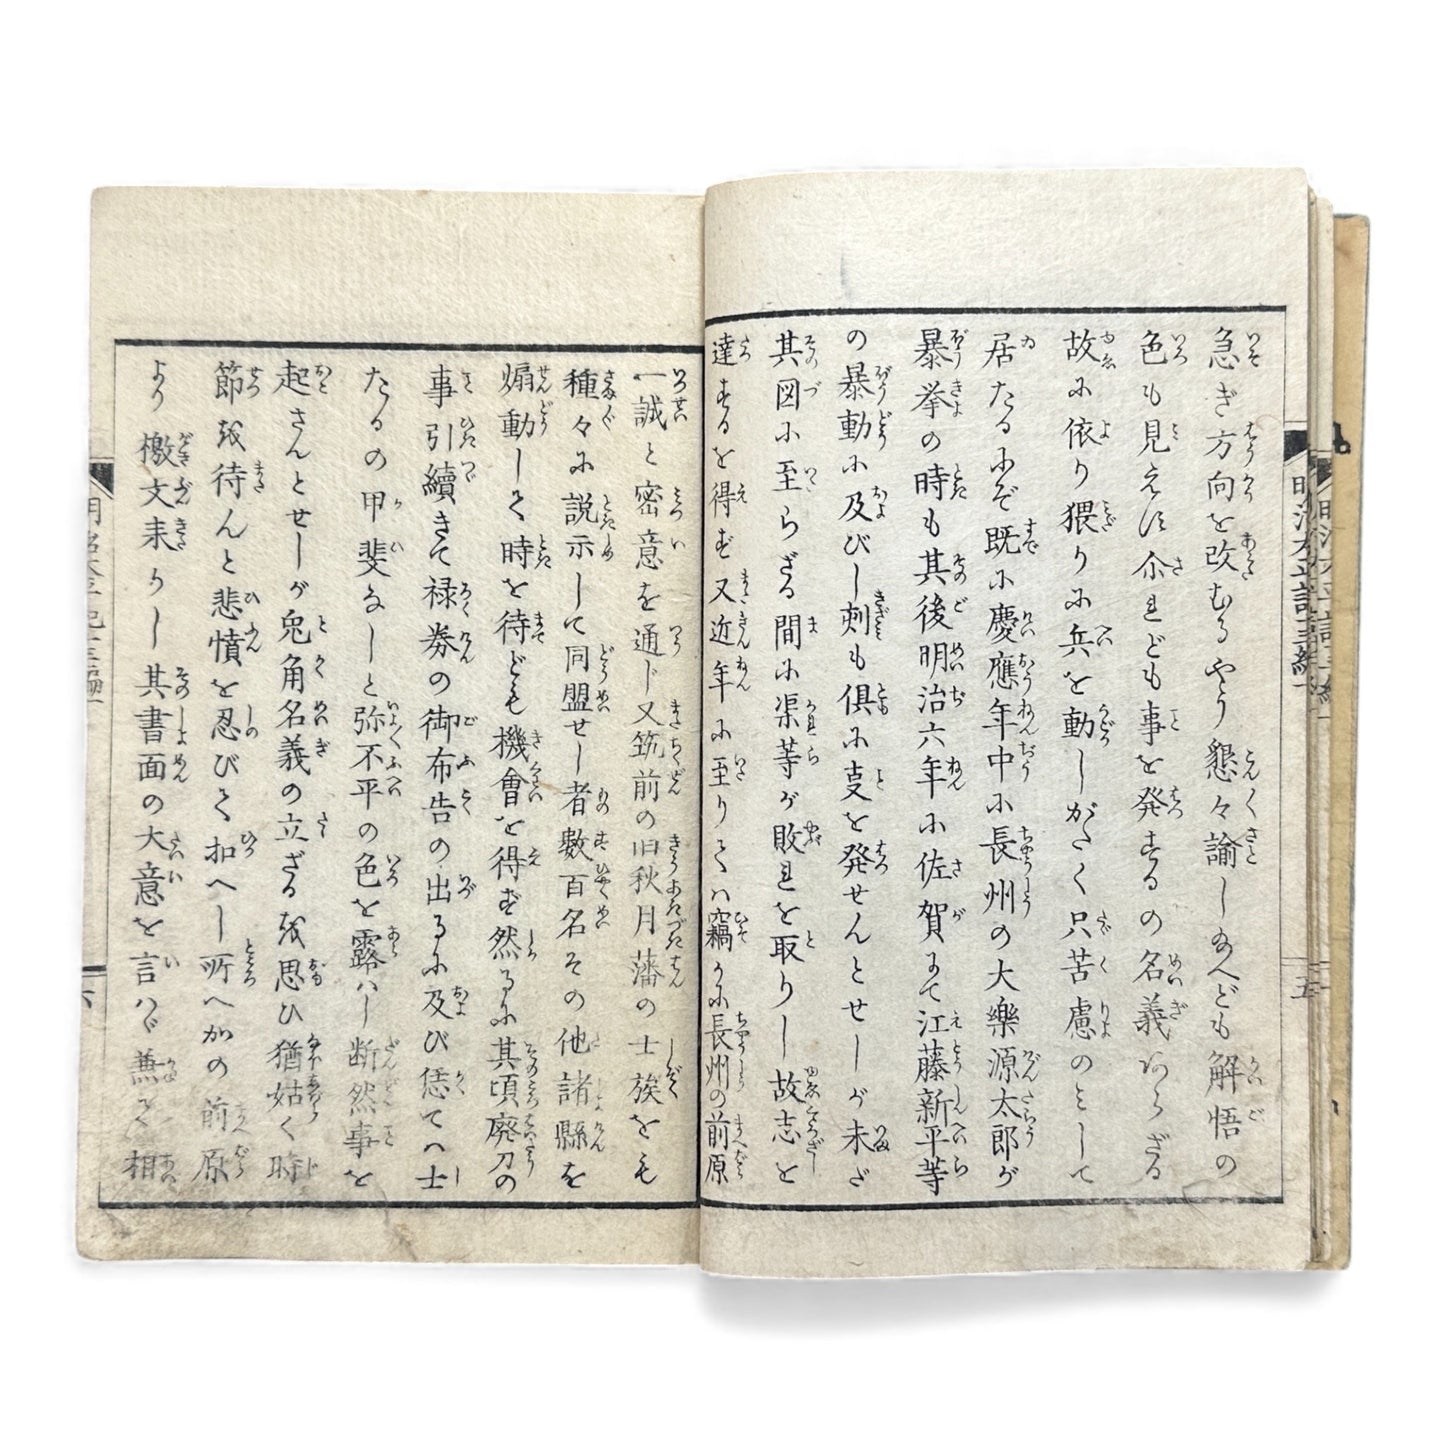 急ぎ方向を改むるやう懇々諭し給へども解悟の
色も見えず尓れども事を発するの名義あらざる
故に依り猥りに兵を動しがたく只苦慮のミして
居たるにぞ既に慶應年中に長州の大樂源太郎が
暴挙の時も其後明治六年に佐賀にて江藤新平等
の暴動に及びし刻も倶に支を発せんとせしが未ざ
其図に至らざる間に渠等が敗れを取りし故志を
達するを得ず又近年に至りてハ竊かに長州の前原
一誠と密意を通じ又筑前の旧秋月藩の士族をも
種々に説示して同盟せし者數百名その他諸縣を
煽動して時を待ども機會を得ず然るに其頃廃刀の
事引續きて禄券の御布告の出るに及び恁てハ士
たるの甲斐なしと弥不平の色を露ハし断然事を
起さんとせしが兎角名義の立ざるを思ひ猶姑く時
節を待んと悲憤を忍びて扣へし所へかの前原
より檄文来りし其書面の大意を言ハゞ兼て相
明治太平記十三編一
五
六